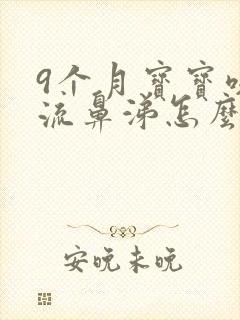 9个月寶寶咳
流鼻涕怎麼
安晚未晚